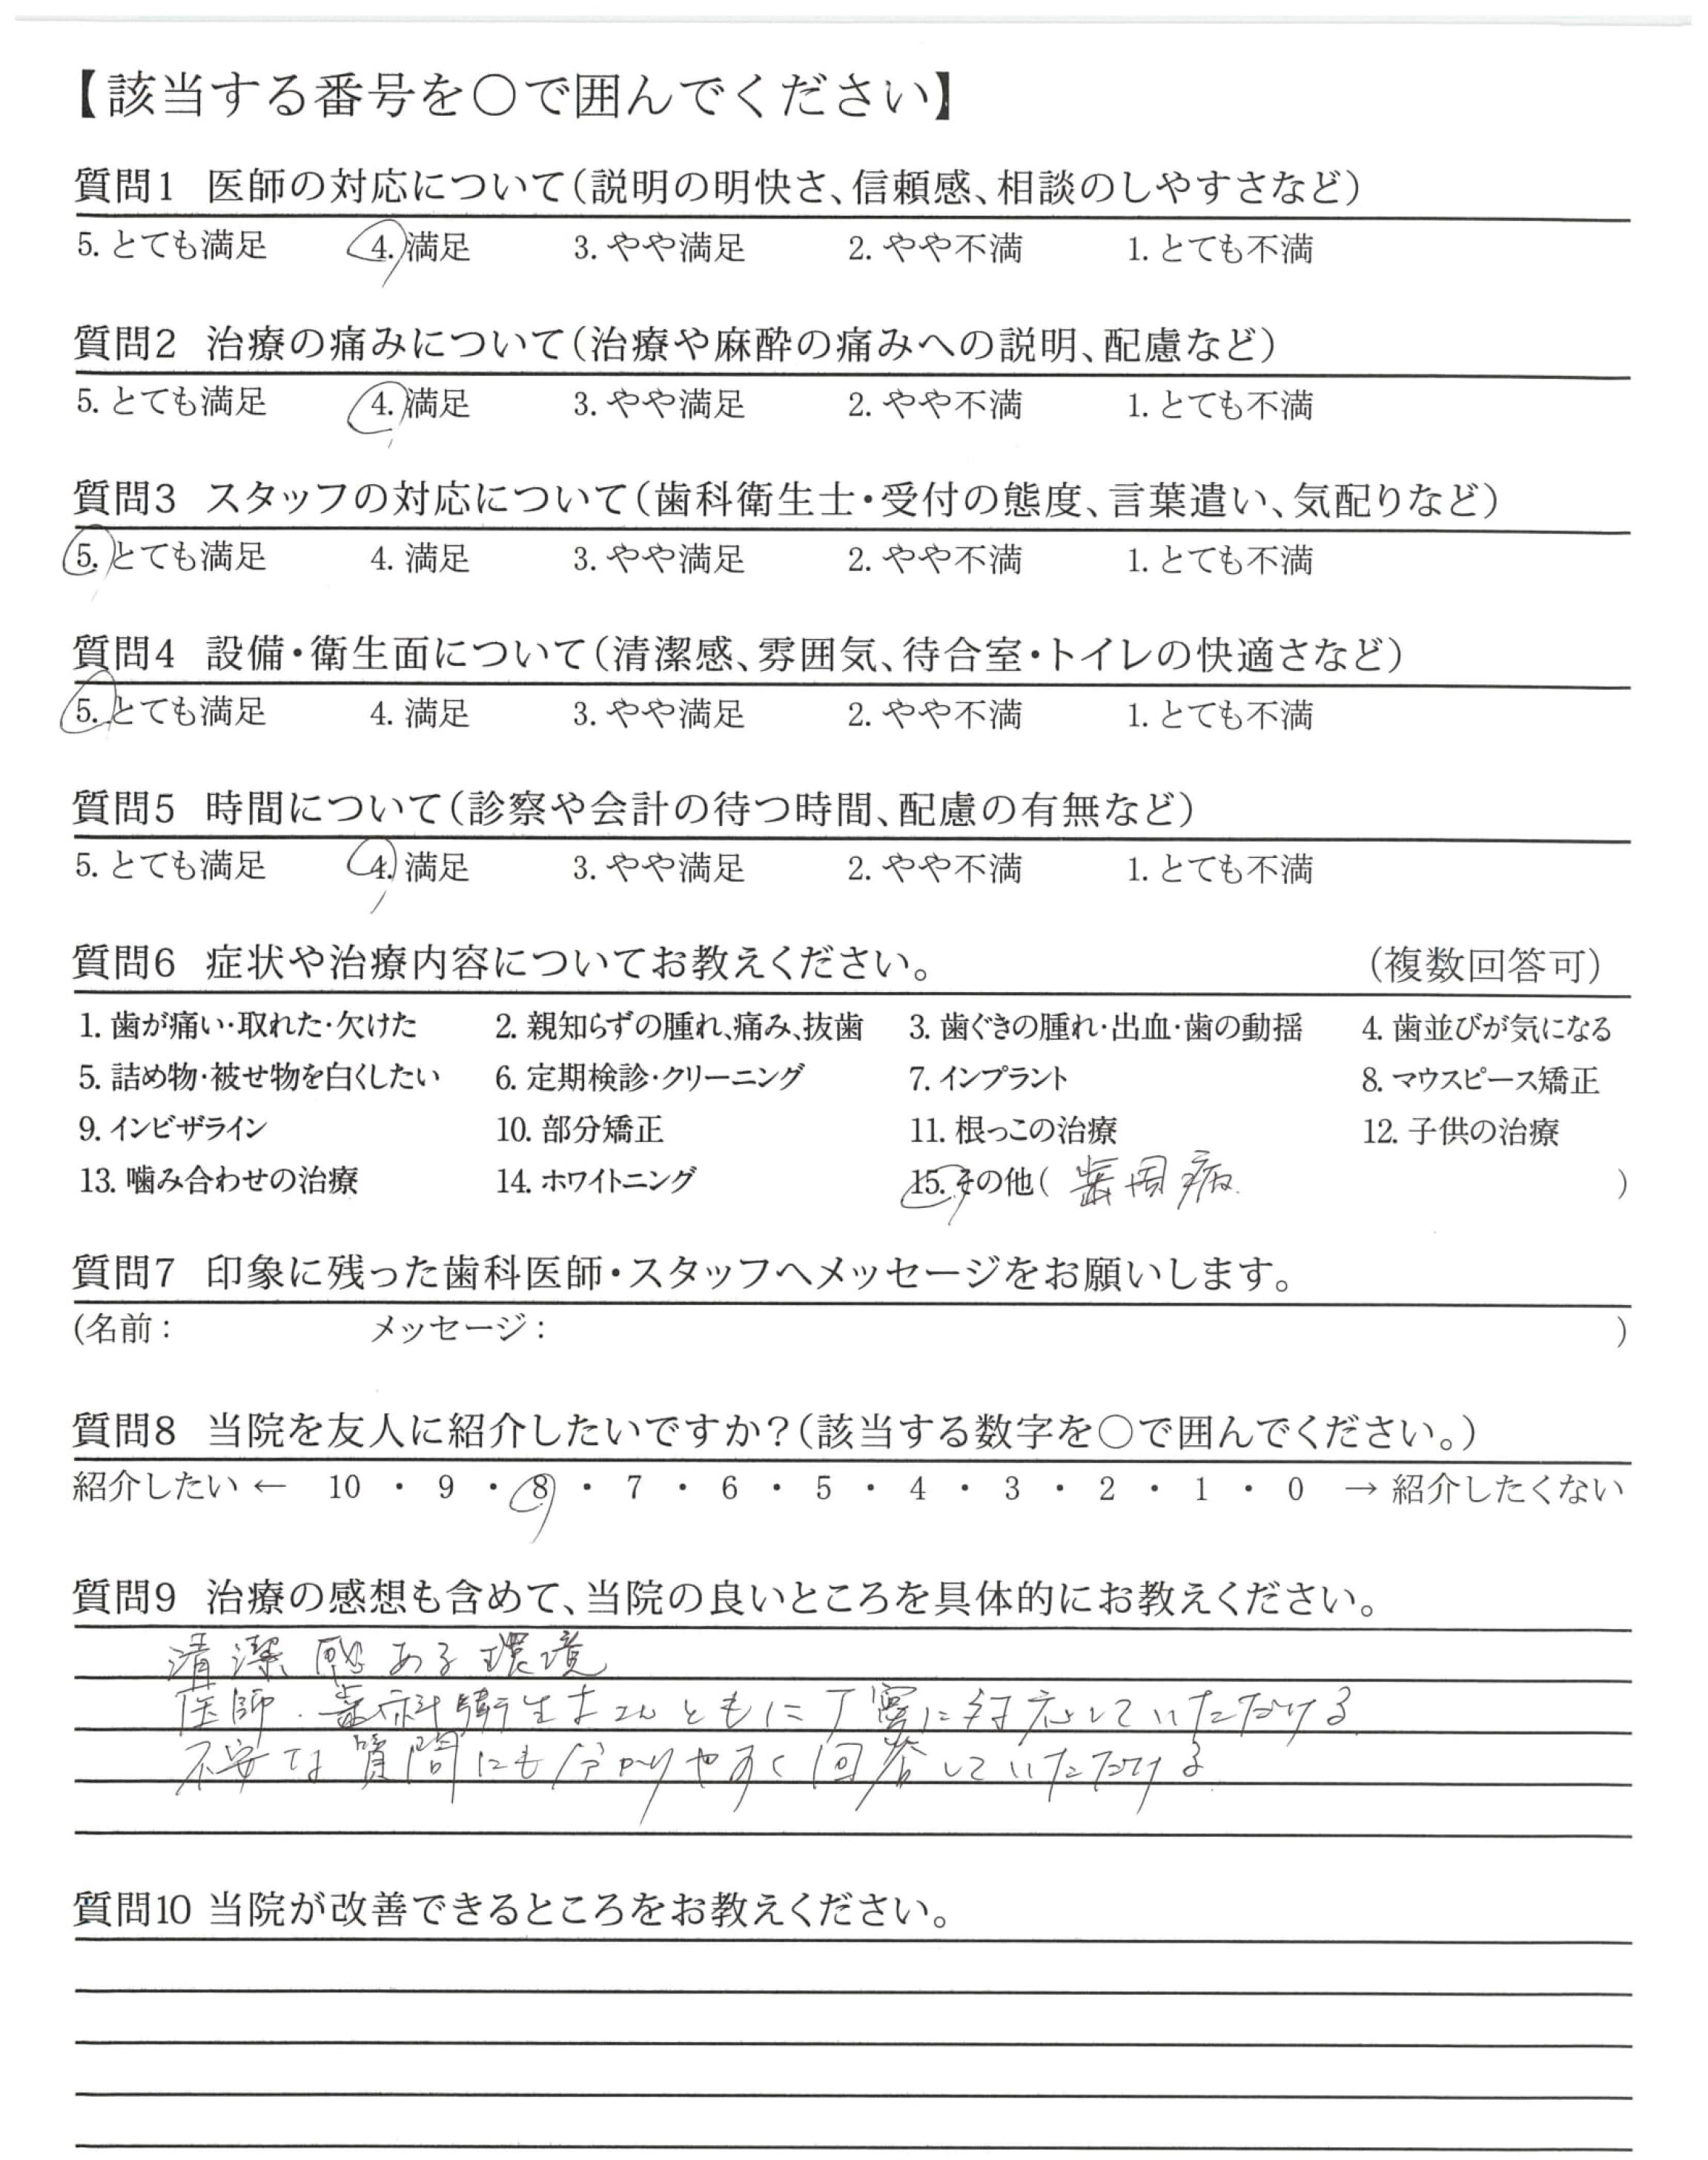 【該当する番号を○で囲んでください】
質問1 医師の対応について(説明の明快さ、信頼感、相談のしやすさなど)
5. とても満足 4. 満足 3. やや満足 2. やや不満 1. とても不満
質問2 治療の痛みについて(治療や麻酔の痛みへの説明、配慮など)
5. とても満足 4. 満足 3. やや満足 2. やや不満 1. とても不満
質問3 スタッフの対応について(歯科衛生士・受付の態度、言葉遣い、気配りなど)
5. とても満足 4. 満足 3. やや満足 2. やや不満 1. とても不満
質問4 設備・衛生面について(清潔感、雰囲気、待合室・トイレの快適さなど)
5. とても満足 4. 満足 3. やや満足 2. やや不満 1. とても不満
質問5 時間について(診察や会計の待つ時間、配慮の有無など)
5. とても満足 4. 満足 3. やや満足 2. やや不満 1. とても不満
質問6 症状や治療内容についてお教えください。 (複数回答可)
1. 歯が痛い・取れた・欠けた 2. 親知らずの腫れ、痛み、抜歯 3. 歯ぐきの腫れ・出血・歯の動揺 4. 歯並びが気になる
5. 詰め物・被せ物を白くしたい 6. 定期検診・クリーニング 7. インプラント 8. マウスピース矯正
9. インビザライン 10. 部分矯正 11. 根っこの治療 12. 子供の治療
13. 噛み合わせの治療 14. ホワイトニング 15. その他( 歯周病 )
質問7 印象に残った歯科医師・スタッフへメッセージをお願いします。
(名前: メッセージ: )
質問8 当院を友人に紹介したいですか?(該当する数字を○で囲んでください。)
紹介したい ← 10 ・ 9 ・ 8 ・ 7 ・ 6 ・ 5 ・ 4 ・ 3 ・ 2 ・ 1 ・ 0 → 紹介したくない
質問9 治療の感想も含めて、当院の良いところを具体的にお教えください。
清潔感ある環境
医師・歯科衛生士さんともに丁寧に対応していただける
不安な質問にも分かりやすく回答していただける
質問10 当院が改善できるところをお教えください。